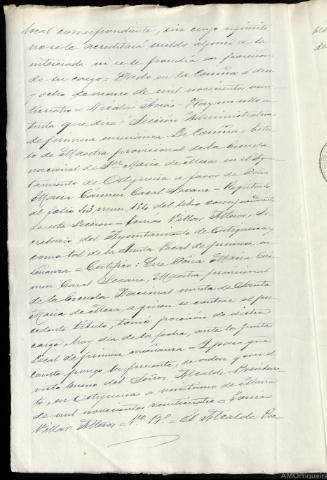 local correspondiente, sin cuyo requisito
no se le acreditará sueldo alguno a la
interesada ni se le pondrá en posesion
de su cargo = Dado en la Coruña a diez
y ocho de marzo de mil novecientos vein
ticuatro = Hay un sello en
tinta que dice: Sección Administrativa
de primera enseñanza = La Coruña = Título
de Maestra provisional de la Escuela
nacional de Sta. Maria de Mera en el Ayun
tamiento de Ortigueira a favor de Doña
Maria Carmen Casal Lozano = Registrado
al folio 23, num. 124 del libro correspondiente
de esta Seccion = Ramón Villar Se
cretario del Ayuntamiento de Ortigueira y
como tal de la Junta local de primera en
señanza = Certifico: Que Doña Maria Car
men Casal Lozano, Maestra provisional
de la Escuela Nacional mixta de Santa
Maria de Mera, a quien se contrae el pre
cedente título, tomó posesión de dicho
cargo, hoy dia de la fecha, ante la Junta
local de primera enseñanza = Y para que
conste pongo la presente, de orden y con el
visto bueno del Señor Alcalde-Presiden
te, en Ortigueira a veintiuno de Marzo
de mil novecientos veinticuatro = Ramon
Villar = Vº Bº = El Alcalde Pre
AMOrtigueira